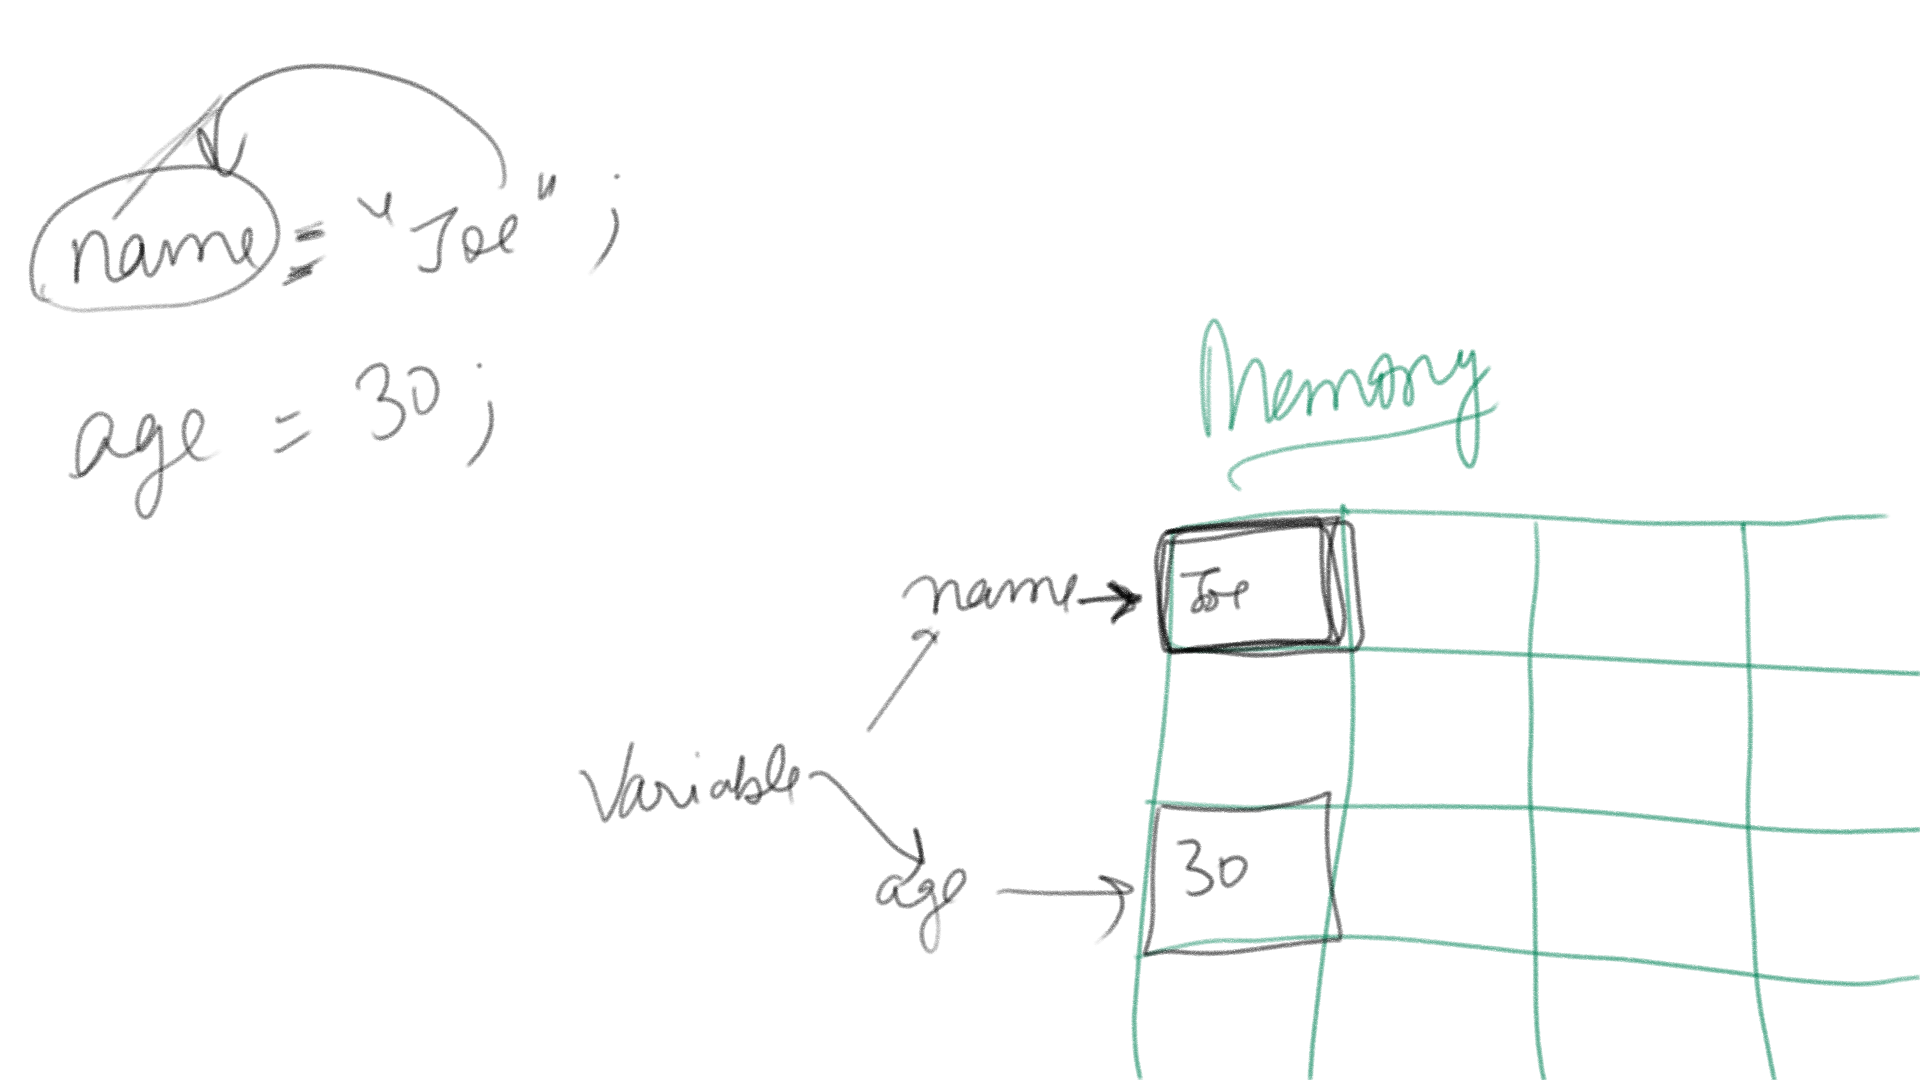 name = "Joe" ;
age = 30 ;
Memory
name → Joe
Variable
age → 30